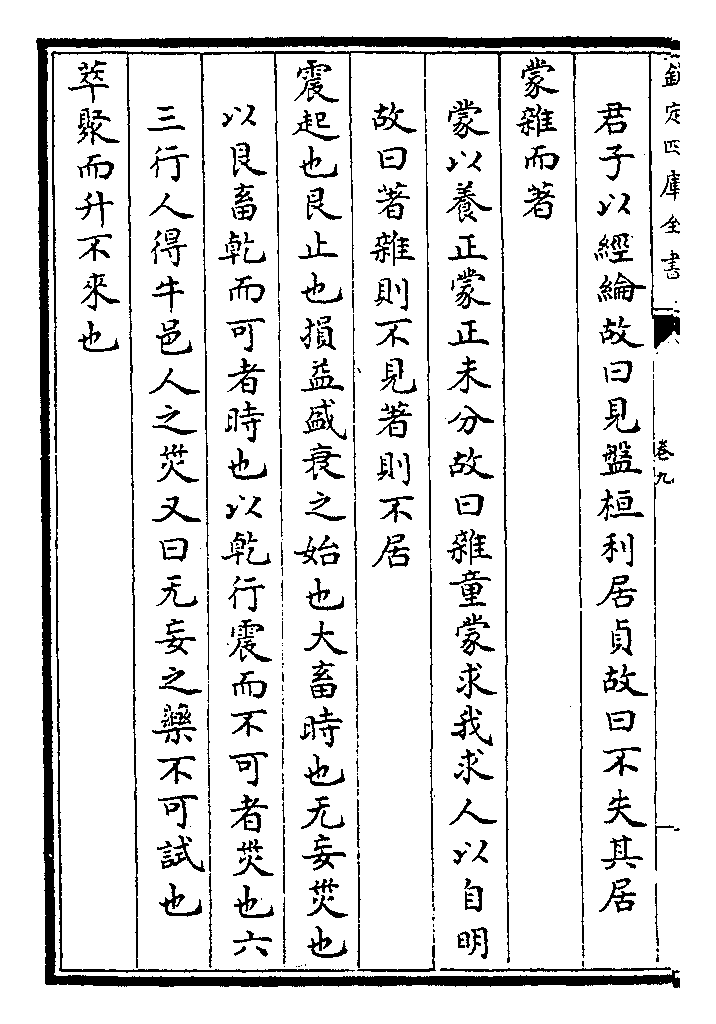 欽定四庫全書
卷九
君子以經綸故曰見盤桓利居貞故曰不失其居
蒙雜而著
蒙以養正蒙正未分故曰雜童蒙求我求人以自明
故曰著雜則不見著則不居
震起也艮止也損益盛衰之始也大畜時也无妄災也
以艮畜乾而可者時也以乾行震而不可者災也六
三行人得牛邑人之災又曰无妄之藥不可試也
萃聚而升不來也